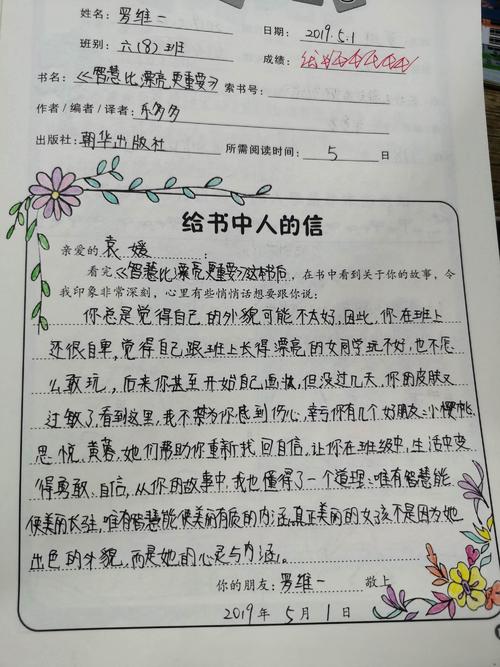 姓名：罗维一 日期：2019.5.1
班别：六(8)班 成绩：
书名：《智慧比漂亮更重要》 索书号：
作者/编者/译者：乐多多
出版社：朝华出版社 所需阅读时间：5日
给书中人的信
亲爱的袁媛：
看完《智慧比漂亮更重要》这本书后，在书中看到关于你的故事，令
我印象非常深刻，心里有些悄悄话想要跟你说：
你总是觉得自己的外貌可能不太好，因此，你在班上
还很自卑，觉得自己跟班上长得漂亮的女同学玩不好，也不愿
么敢玩，后来你甚至开始自己画妆，但没过几天，你的皮肤又
过敏了，看到这里，我不禁为你感到伤心，幸亏你有几个好朋友：小樱桃、
思悦、黄蓉，她们帮助你重新找回自信，让你在班级中，生活中变
得勇敢、自信，从你的故事中，我也懂得了一个道理：唯有智慧能
使美丽长驻，唯有智慧能使美丽有质的内涵，真正美丽的女孩不是因为她
出色的外貌，而是她的心灵与内涵。
你的朋友：罗维一 敬上
2019年5月1日